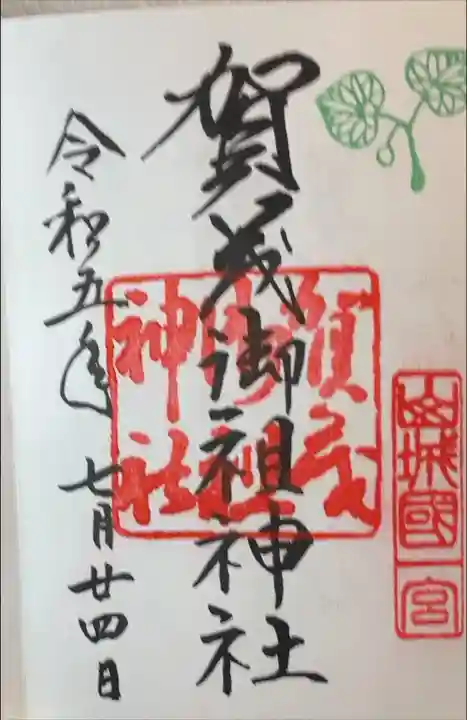 山城國一宮
賀茂御祖神社
賀茂御祖神社
令和五年 七月廿四日